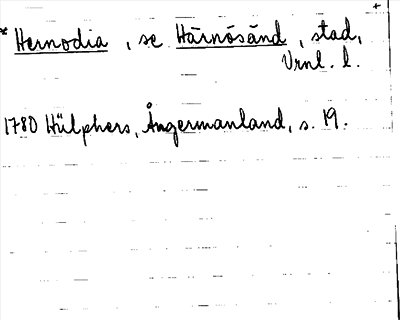 +
* Hernodia, se Härnösänd, stad,
Vrnl. l.
1780 Hülphers, Ångermanland, s. 19.